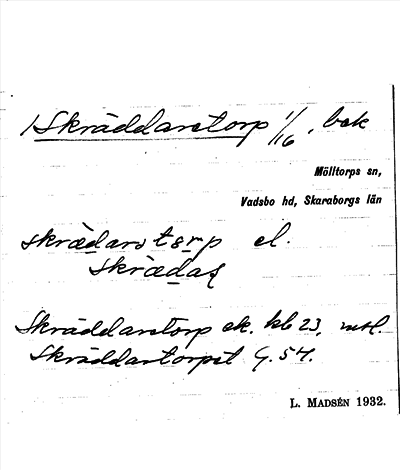 Skräddaretorp 1/16, bek
Mölltorps sn,
Vadsbo hd, Skaraborgs län
skrædarstorp el.
skrædas
Skräddaretorp ek. kb 23, mtl.
Skräddartorpet G. 54.
L. Madsén 1932.